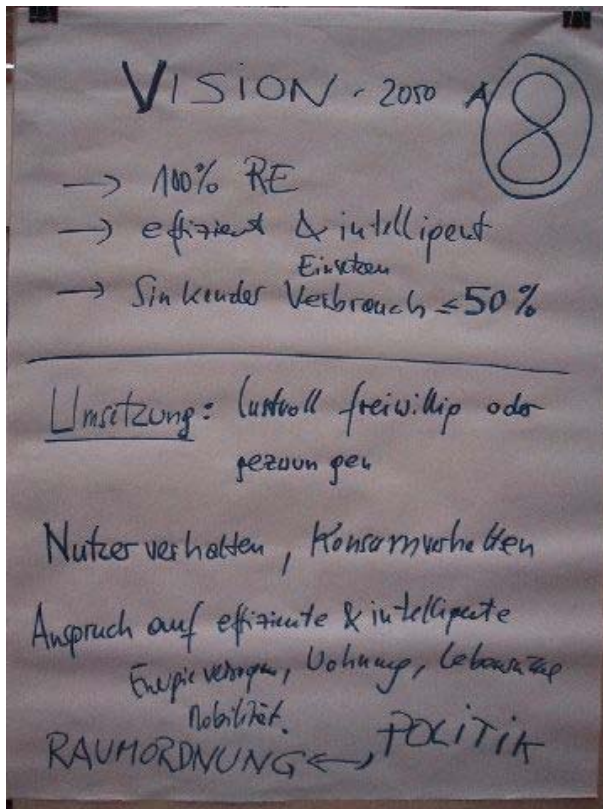 VISION - 2050 A 8
→ 100% RE
→ effizient & intelligent
Einsetzen
→ Sinkender Verbrauch ≤ 50%
Umsetzung: lustvoll freiwillig oder
gezwungen
Nutzerverhalten, Konsumverhalten
Anspruch auf effiziente & intelligente
Wohnung,
Mobilität.
RAUMORDNUNG ↔ POLITIK